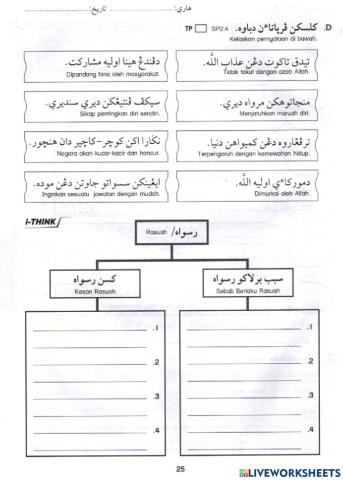 هاري: تاريخ:
D. کلسکن ڤرڽاتاءن دباوه. TP SP2.4
Kelaskan pernyataan di bawah.
تيدق تاکوت دڠن عذاب الله.
Tidak takut dengan azab Allah
دڤندڠ هينا اوليه مشارکت.
Dipandang hina oleh masyarakat.
منجاتوهکن مرواه ديري.
Menjatuhkan maruah diri.
سيکڤ ڤنتيڠکن ديري سنديري.
Sikap pentingkan diri sendiri.
ترڤڠاروه دڠن کميواهن دنيا.
Terpengaruh dengan kemewahan hidup.
نݢارا اکن کوچر-کاچير دان هنچور.
Negara akan kucar-kacir dan hancur.
دمورکاءي اوليه الله.
Dimurkai oleh Allah.
ايڠينکن سسواتو جاوتن دڠن موده.
Inginkan sesuatu jawatan dengan mudah.
i-THINK
رسواه/ Rasuah
سبب برلاکو رسواه
Sebab Berlaku Rasuah
کسن رسواه
Kesan Rasuah
1.
2.
3.
4.
1.
2.
3.
4.
25
LIVEWORKSHEETS